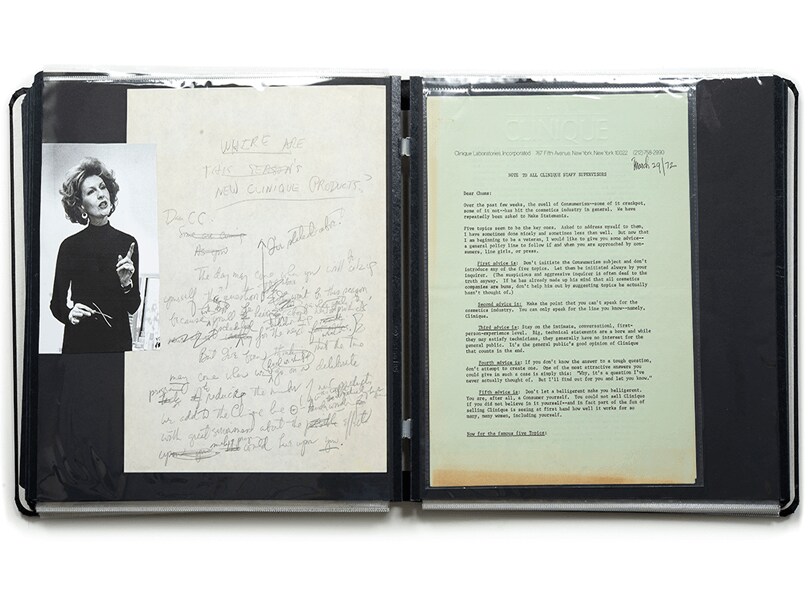 WHERE ARE
THIS SEASON'S
NEW CLINIQUE PRODUCTS?
Dear C.C.
The day may come when you will
yourself the question
because
for the next
But
may come when we deliberate
reducing the number of
we add to the Clinique line
with great about the effects
upon you!
CLINIQUE
Clinique Laboratories, Incorporated 767 Fifth Avenue, New York, New York 10022 (212) 758-2950
March 29/72
NOTE TO ALL CLINIQUE STAFF SUPERVISORS
Dear Chums:
Over the past few weeks, the swell of Consumerism--some of it crackpot,
some of it not--has hit the cosmetics industry in general. We have
repeatedly been asked to Make Statements.
Five topics seem to be the key ones. Asked to address myself to them,
I have sometimes done nicely and sometimes less than well. But now that
I am beginning to be a veteran, I would like to give you some advice--
a general policy line to follow if and when you are approached by con-
sumers, line girls, or press.
First advice is: Don't initiate the Consumerism subject and don't
introduce any of the five topics. Let them be initiated always by your
inquirer. (The suspicious and aggressive inquirer is often dead to the
truth anyway. If he has already made up his mind that all cosmetics
companies are bums, don't help him out by suggesting topics he actually
hasn't thought of.)
Second advice is: Make the point that you can't speak for the
cosmetics industry. You can only speak for the line you know--namely,
Clinique.
Third advice is: Stay on the intimate, conversational, first-
person-experience level. Big, technical statements are a bore and while
they may satisfy technicians, they generally have no interest for the
general public. It's the general public's good opinion of Clinique
that counts in the end.
Fourth advice is: If you don't know the answer to a tough question,
don't attempt to create one. One of the most attractive answers you
could give in such a case is simply this: "Why, it's a question I've
never actually thought of. But I'll find out for you and let you know."
Fifth advice is: Don't let a belligerent make you belligerent.
You are, after all, a Consumer yourself. You could not sell Clinique
if you did not believe in it yourself--and in fact part of the fun of
selling Clinique is seeing at first hand how well it works for so
many, many women, including yourself.
Now for the famous five Topics: